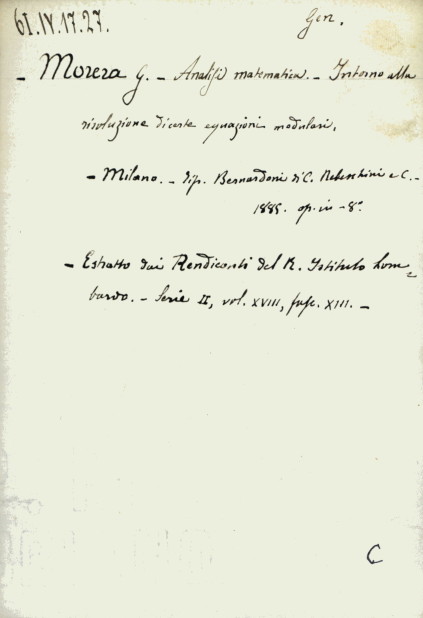 61.IV.17.27.
Gen.
- Morera G. - Analisi matematica. - Intorno alla
risoluzione di certe equazioni modulari.
- Milano. - Tip. Bernardoni di C. Rebeschini e C. -
1885. op. in - 8°
- Estratto dai Rendiconti del R. Istituto Lom=
bardo. - Serie II, vol. XVIII, fasc. XIII. -
C